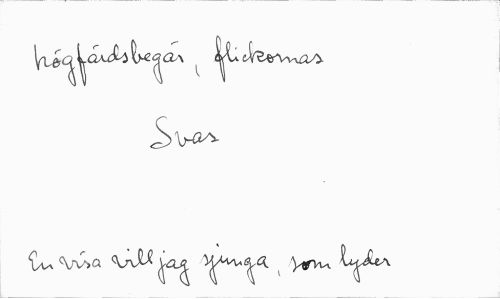 högfärdsbegär, flickornas
Svas
En visa vill jag sjunga, som lyder